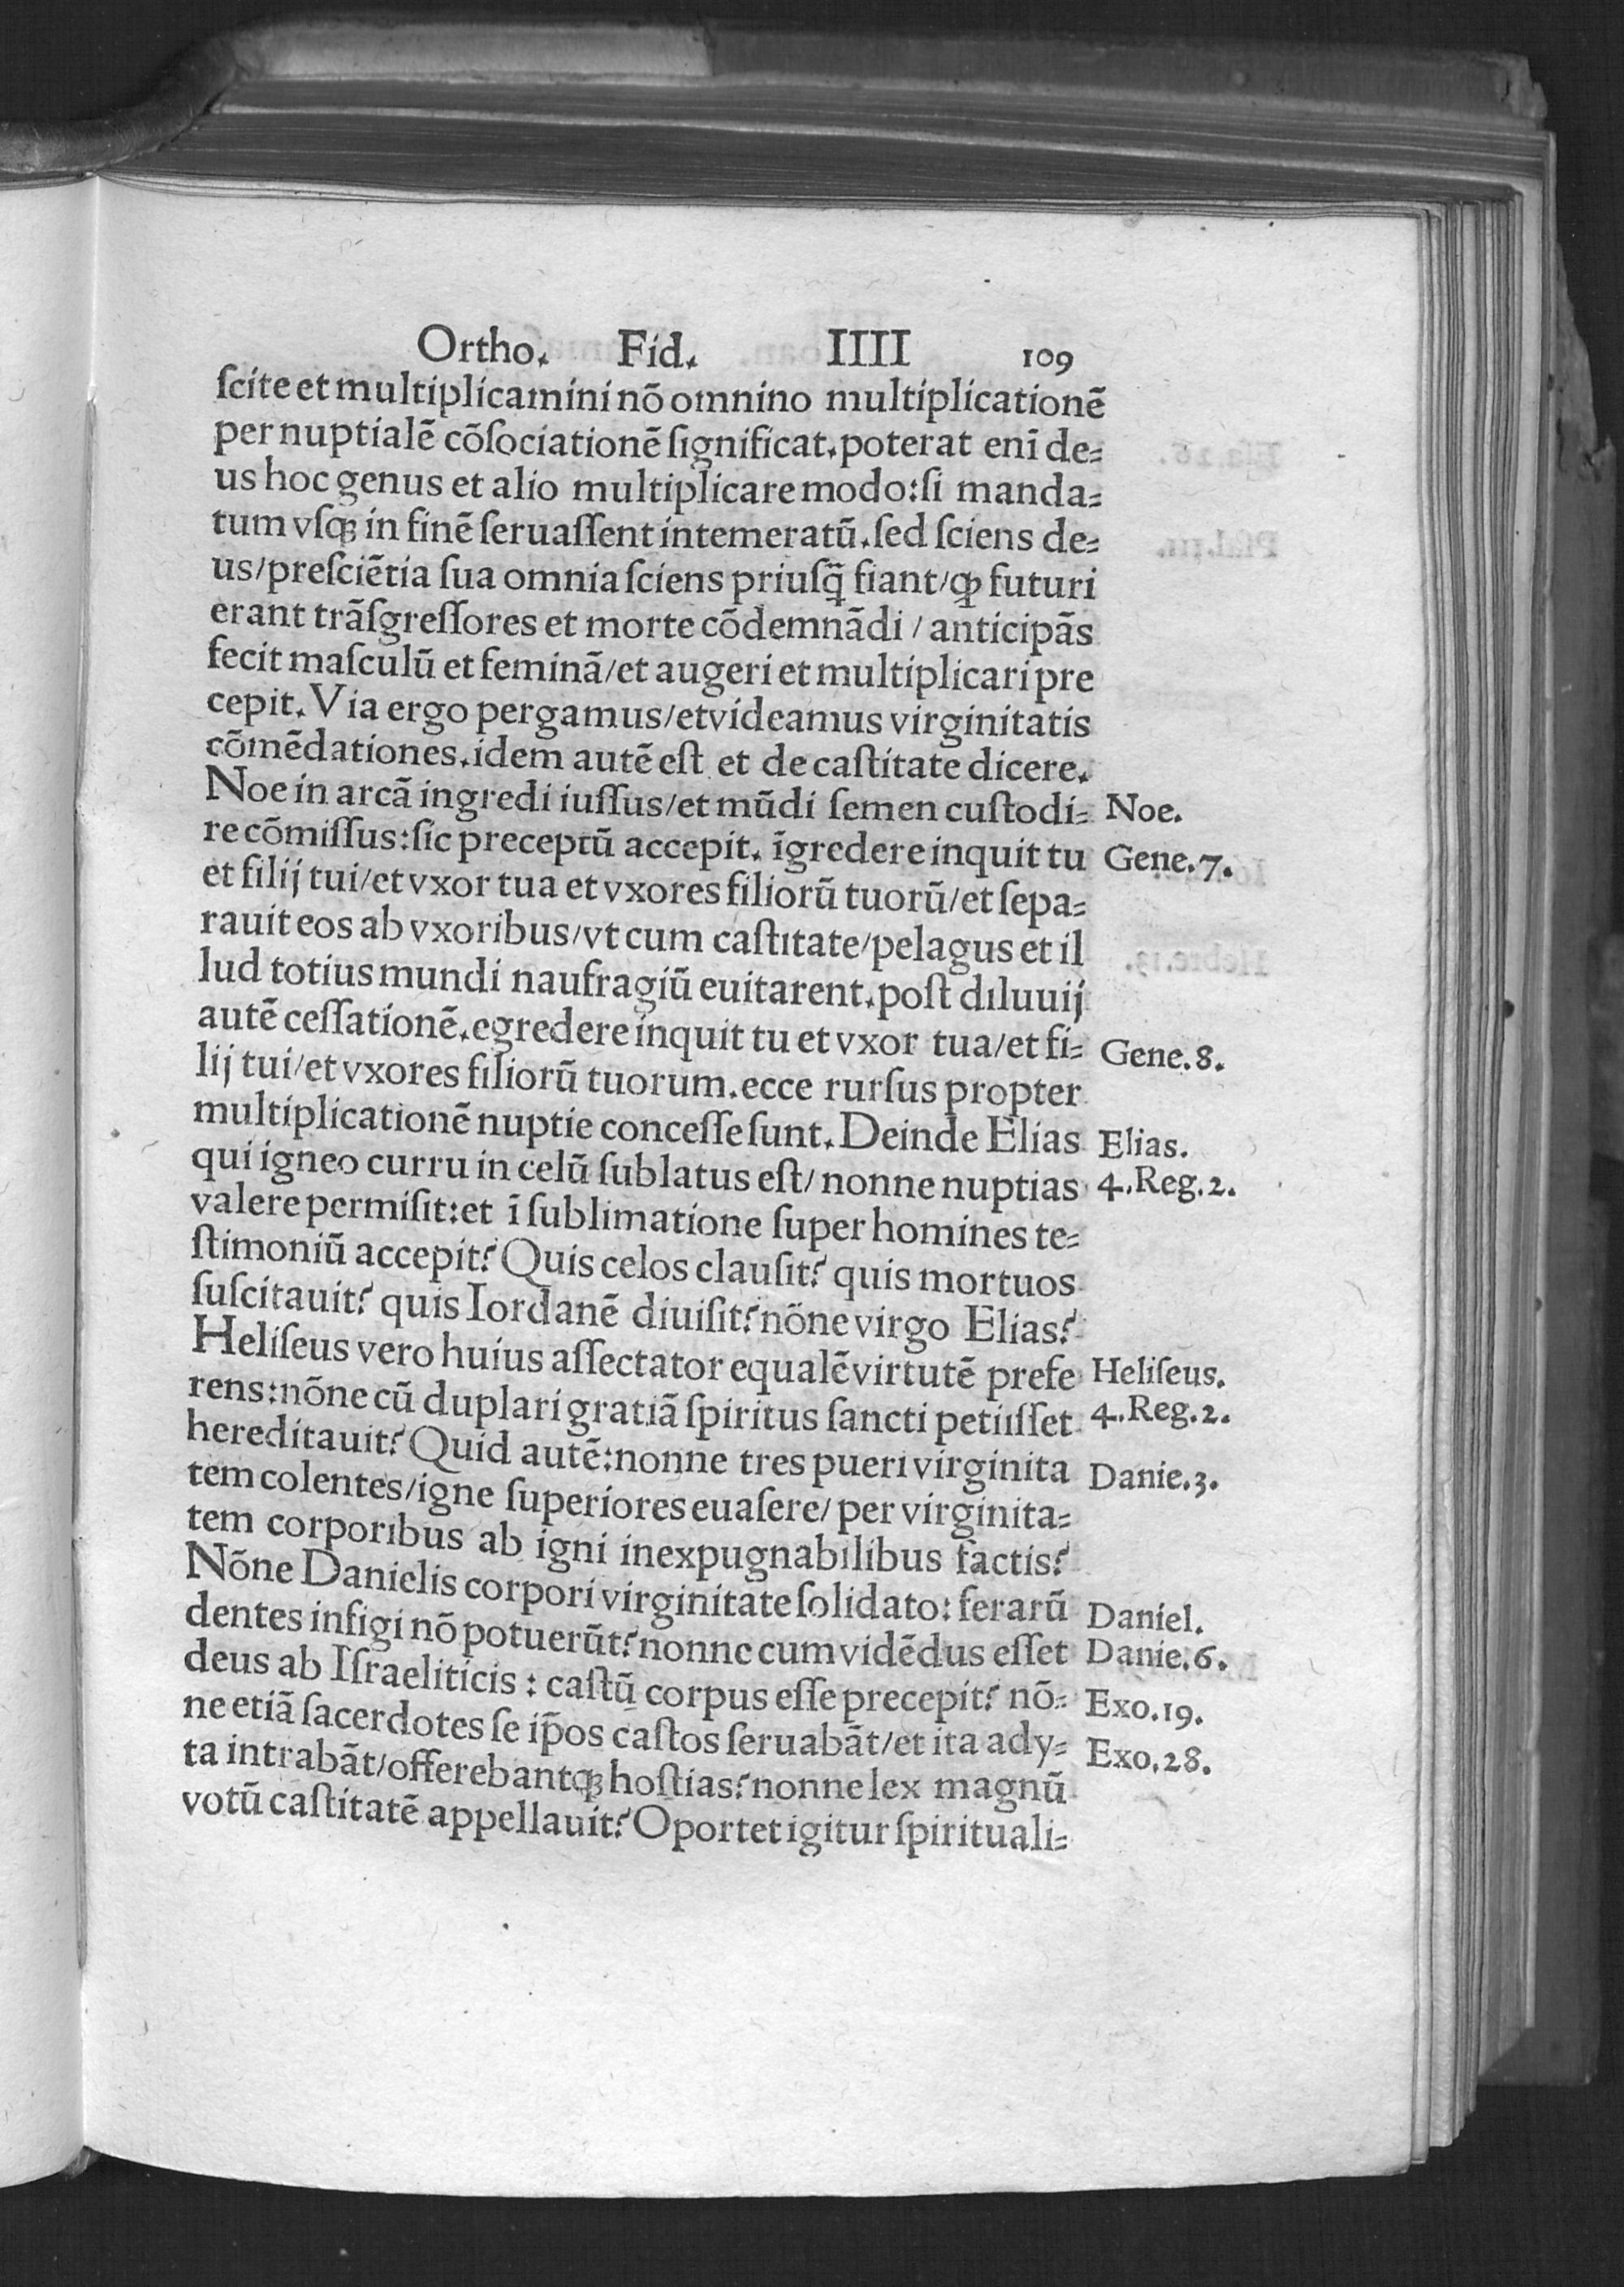 Ortho. Fid. IIII 109
ſcite et multiplicamini nō omnino multiplicationē
per nuptialē cōſociationē ſignificat. poterat enī de⸗
us hoc genus et alio multiplicare modo: ſi manda⸗
tum vſqꝫ in finē ſeruaſſent intemeratū. ſed ſciens de⸗
us/preſciētia ſua omnia ſciens priuſq̄ fiant/ꝙ futuri
erant trāſgreſſores et morte cōdemnādi / anticipās
fecit maſculū et feminā/et augeri et multiplicari pre
cepit. Via ergo pergamus/et videamus virginitatis
cōmēdationes. idem autē eſt et de caſtitate dicere.
Noe in arcā ingredi iuſſus/et mūdi ſemen cuſtodi⸗ Noe.
re cōmiſſus: ſic preceptū accepit. īgredere inquit tu Gene.7.
et filij tui/et vxor tua et vxores filiorū tuorū/et ſepa⸗
rauit eos ab vxoribus/vt cum caſtitate/pelagus et il
lud totius mundi naufragiū euitarent. poſt diluuij
autē ceſſationē. egredere inquit tu et vxor tua/et fi⸗ Gene.8.
lij tui/et vxores filiorū tuorum. ecce rurſus propter
multiplicationē nuptie conceſſe ſunt. Deinde Elias Elias.
qui igneo curru in celū ſublatus eſt/ nonne nuptias 4.Reg.2.
valere permiſit: et ī ſublimatione ſuper homines te⸗
ſtimoniū accepit? Quis celos clauſit? quis mortuos
ſuſcitauit? quis Iordanē diuiſit? nōne virgo Elias?
Heliſeus vero huius aſſectator equalē virtutē prefe Heliſeus.
rens: nōne cū duplari gratiā ſpiritus ſancti petiiſſet 4.Reg.2.
hereditauit? Quid autē: nonne tres pueri virginita Danie.3.
tem colentes/igne ſuperiores euaſere/ per virginita⸗
tem corporibus ab igni inexpugnabilibus factis?
Nōne Danielis corpori virginitate ſolidato: ferarū Daniel.
dentes infigi nō potuerūt? nonne cum vidēdus eſſet Danie.6.
deus ab Iſraeliticis : caſtū corpus eſſe precepit? nō⸗ Exo.19.
ne etiā ſacerdotes ſe ip̄os caſtos ſeruabāt/et ita ady⸗ Exo.28.
ta intrabāt/offerebantqꝫ hoſtias? nonne lex magnū
votū caſtitatē appellauit? Oportet igitur ſpirituali⸗